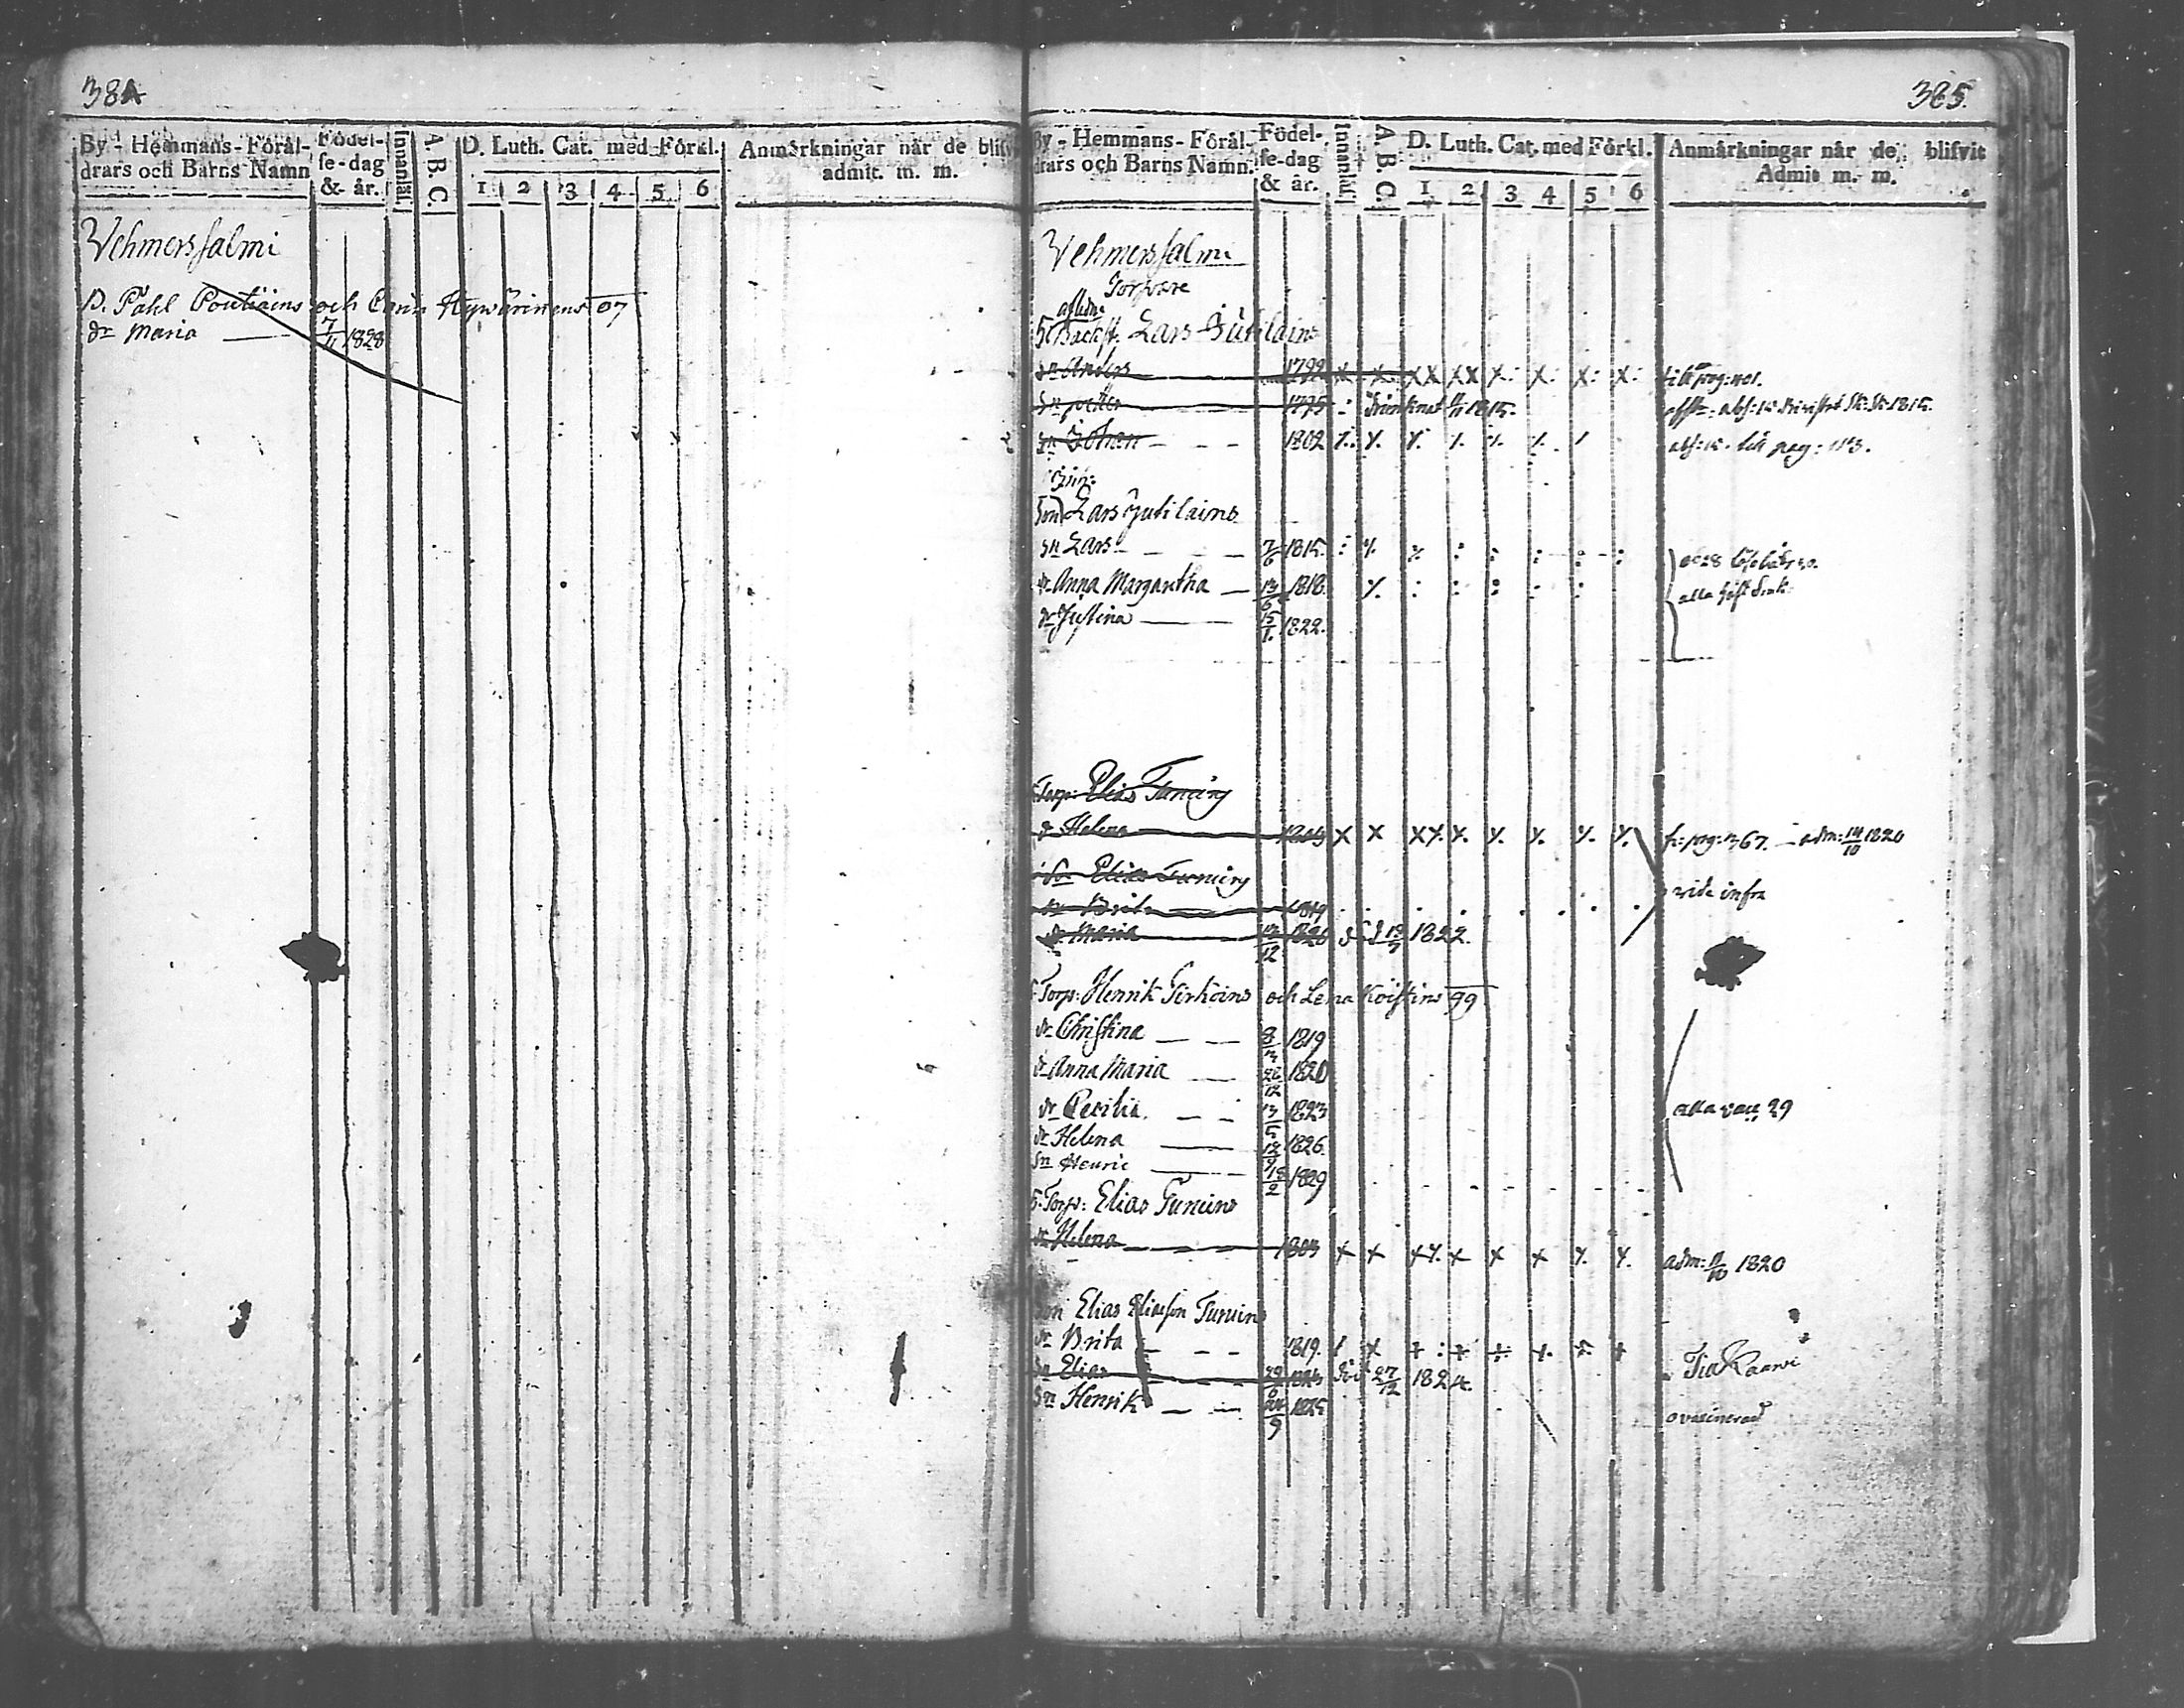 384
By-Hemmans-Föräl-
drars och Barns Namn
Födel-
se-dag
& år.
Innantil.
A B C
D. Luth. Cat. med Förkl.
1 2 3 4 5 6
Anmärkningar när de blifvit
admit. m. m.
Vehmerssalmi
D. Påhl Poutiains och Carin Hyvärinens 07
dr Maria 7/11 1828
385.
By-Hemmans-Föräl-
drars och Barns Namn.
Födel-
se-dag
& år.
Innantil
A. B. C.
D. Luth. Cat. med Förkl.
1 2 3 4 5 6
Anmärkningar när de blifvit
Admit m. m.
Vehmerssalmi
Torpare
Lars Jutilains
sn Anders 1799 till pag:
sn Petter 1795 drunknat 1815.
sn Johan 1802 till pag: 113.
Son Lars Jutilains
sn Lars 7/6 1815.
dr Anna Margaretha 13/6 1818. alla
dr Justina 15/1. 1822.
Torp: Elias Turuins
dr Helena 1803 f: pag: 367. adm: 14/10 1820
Son Elias Turuins
dr Brita 1819 vide infra
dr Maria 12/12 1820 1822.
Torp: Henrik Tirkoins och Lena Koistins 99
dr Christina 8/3 1819
dr Anna Maria 26/12 1820
dr Cecilia 1823 alla vacc 29
dr Helena 12/9 1826.
sn Henric 18/2 1829
Torp: Elias Turuins
dr Helena 1803 adm: 1820
Son Elias Eliasson Turuins
dr Brita 1819.
sn Elias 1823 död 27/12 1824.
sn Henrik 1825 ovaccinerad